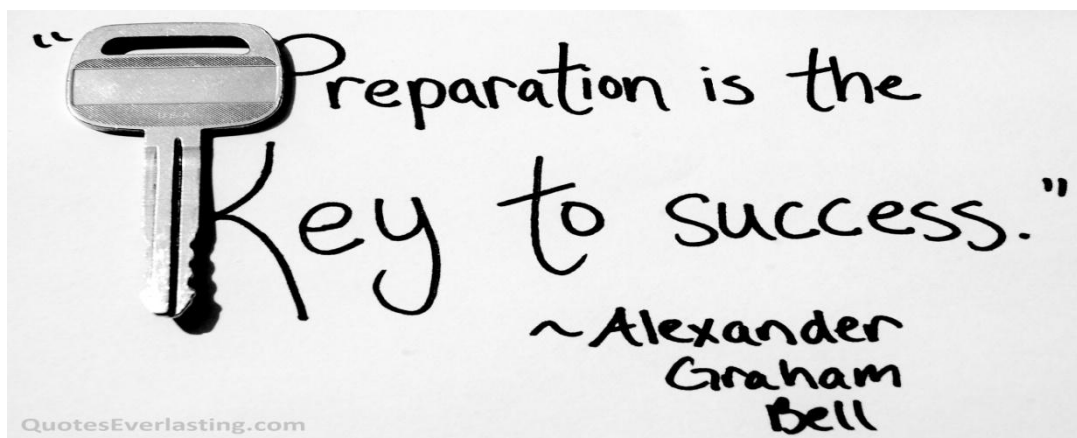 "Preparation is the
Key to success."
~Alexander
Graham
Bell
USA
QuotesEverlasting.com